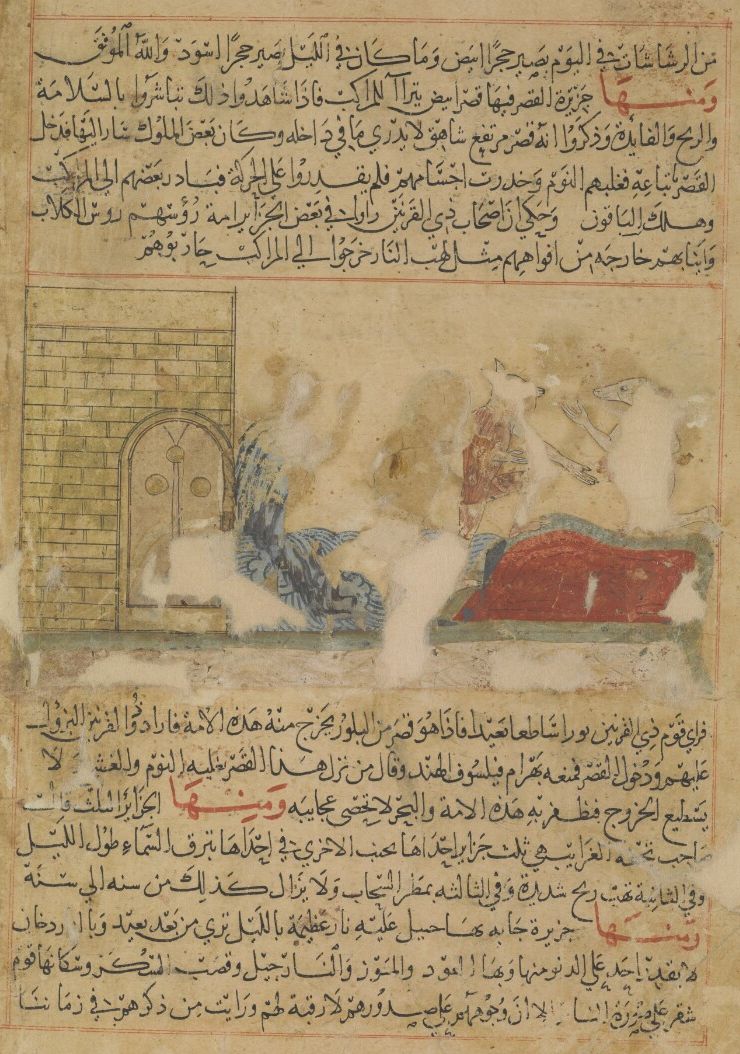 من الرشاشات في اليوم يصير حجرا ابيض وما كان في الليل يصير حجرا اسود والله الموفق
ومنها جزيرة القصر فيها قصر ابيض يترآا للمراكب فاذا شاهدوا ذلك تباشروا بالسلامة
والربح والفايدة وذكروا انه قصر مرتفع شاهق لا يدري ما في داخله وكان بعض الملوك سار اليها فدخل
القصر بتباعه فغلبهم النوم وخدرت اجسامهم فلم يقدروا علي الحركة فبادر بعضهم الي المراكب
وهلك الباقون وحكي ان اصحاب ذي القرنين راوا في بعض الجزاير امة رؤسهم روس الكلاب
وانيابهم خارجه من افواههم مثل لهب النار خرجوا الي المراكب حاربوهم
فراي قوم ذي القرنين نورا ساطعا بعيدا فاذا هو قصر من البلور يخرج منه هذه الامة فاراد ذوا القرنين النزول
عليهم ودخول القصر فمنعه بهرام فيلسوف الهند وقال من نزل هذا القصر يغلبه النوم والغشي لا
يستطيع الخروج فظفر به هذه الامة والبحر لا تحصي عجايبه ومنها الجزاير الثلث قالت
صاحب تحفه الغرايب هي ثلث جزاير احداها بجنب الاخري في احداها تبرق السماء طول الليل
وفي الثانية تهب ريح شديدة وفي الثالثه يمطر السحاب ولا يزال كذلك من سنه الي سنة
ومنها جزيرة جابه بها جبل عليه نار عظيمة بالليل تري من بعد بعيد وبالنهار دخان
لا يقدر احد علي الدنو منها وبها العود والموز والنارجيل وقصب السكر وسكانها قوم
شقر علي صورة الناس الا ان وجوههم علي صدورهم لا رقبة لهم ورايت من ذكرهم في زماننا